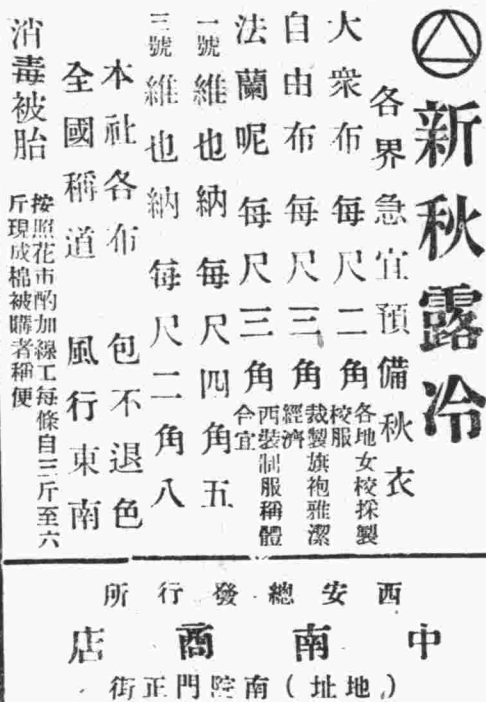 新秋露冷
各界急宜預備秋衣
大衆布 每尺二角 各地女校採製校服
自由布 每尺三角 裁製旗袍雅潔經濟
法蘭呢 每尺三角 西裝制服稱體合宜
一號維也納 每尺四角五
三號維也納 每尺二角八
本社各布 包不退色
全國稱道 風行東南
消毒被胎 按照花市酌加線工每條自三斤至六斤現成棉被購者稱便
西安總發行所
中南商店
(地址)南院門正街